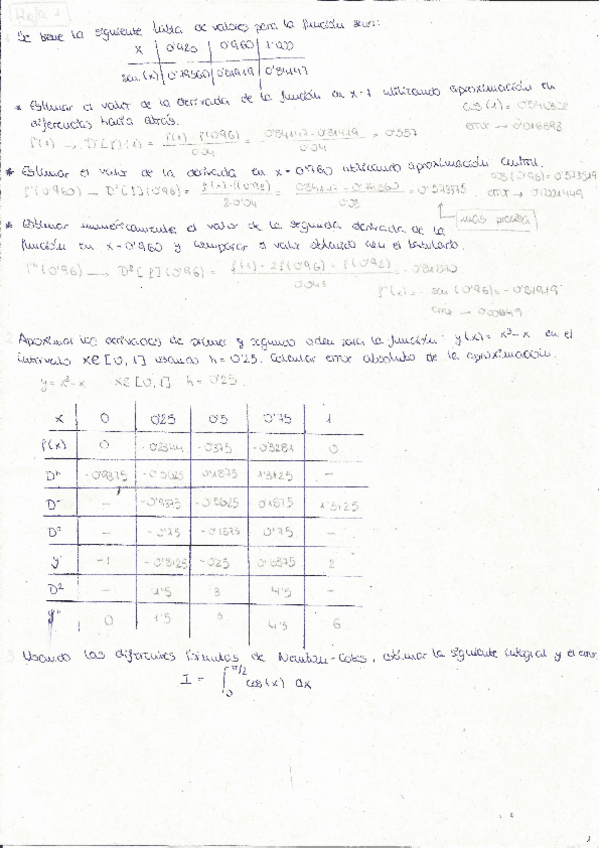 Hoja 1
1. Se tiene la siguiente tabla de valores para la función sen:
x 0'920 0'960 1'000
sen(x) 0'79560 0'81919 0'84147
* Estimar el valor de la derivada de la función en x=1 utilizando aproximación en
diferencias hacia atrás.
cos(1) = 0'540302
f'(1) → D⁻[f](1) = f(1) - f(0'96) / 0'04 = 0'84147 - 0'81919 / 0'04 = 0'557
error → 0'016698
* Estimar el valor de la derivada en x = 0'960 utilizando aproximación central.
cos(0'96) = 0'573519
f'(0'960) → D⁰[f](0'96) = f(1) - f(0'92) / 2·0'04 = 0'84147 - 0'79560 / 0'08 = 0'573375
error →
más precisa
* Estimar numéricamente el valor de la segunda derivada de la
función en x = 0'960 y comparar el valor obtenido con el tabulado.
f''(0'96) → D²[f](0'96) = f(1) - 2f(0'96) - f(0'92) /
sen(0'96) = -0'81919
error →
2. Aproximar las derivadas de primer y segundo orden para la función: y(x) = x³-x en el
intervalo x∈[0, 1] usando h = 0'25. Calcular error absoluto de la aproximación.
y = x³-x x∈[0, 1] h = 0'25.
x 0 0'25 0'5 0'75 1
f(x) 0 -0'2344 -0'375 -0'3281 0
D⁺ -0'9375 -0'5625 0'1875 1'3125 -
D⁻ - -0'9375 -0'5625 0'1875 1'3125
D⁰ - -0'75 -0'1875 0'75 -
y' -1 -0'8125 -0'25 0'6875 2
D² - 1'5 3 4'5 -
y'' 0 1'5 3 4'5 6
3. Usando las diferentes fórmulas de Newton-Cotes, estimar la siguiente integral y el error.
I = ∫₀^π/2 cos(x) dx